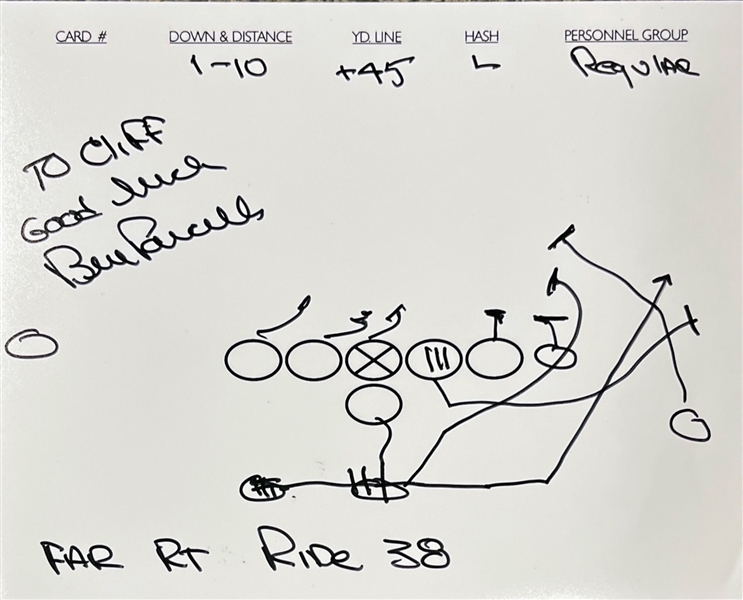 CARD # DOWN & DISTANCE YD. LINE HASH PERSONNEL GROUP
1-10 +45 L Regular
TO Cliff
GOOD Luck
Bill Parcells
FAR RT RIDE 38